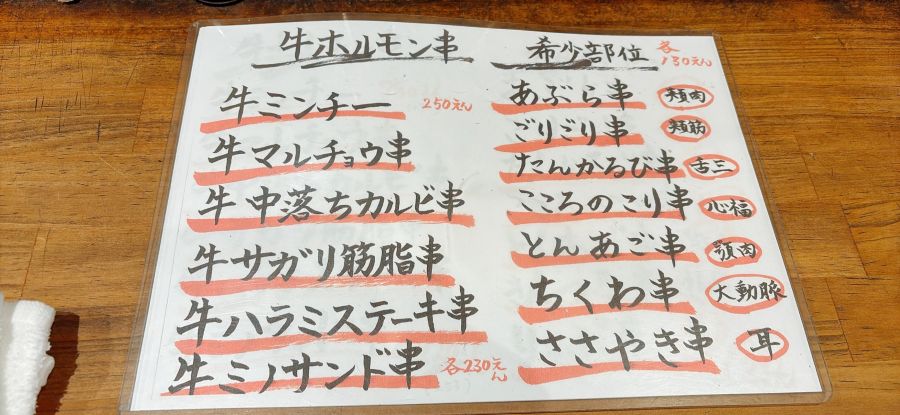 牛ホルモン串
牛ミンチー 250えん
牛マルチョウ串
牛中落ちカルビ串
牛サガリ筋脂串
牛ハラミステーキ串
牛ミノサンド串 各230えん
希少部位 各130えん
あぶら串 頬肉
ごりごり串 頬筋
たんかるび串 舌三
こころのこり串 心福
とんあご串 顎肉
ちくわ串 大動脈
ささやき串 耳